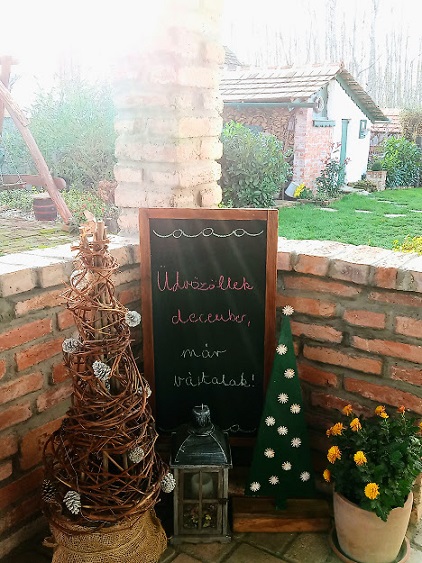 Üdvözöllek
december,
már
vártalak!